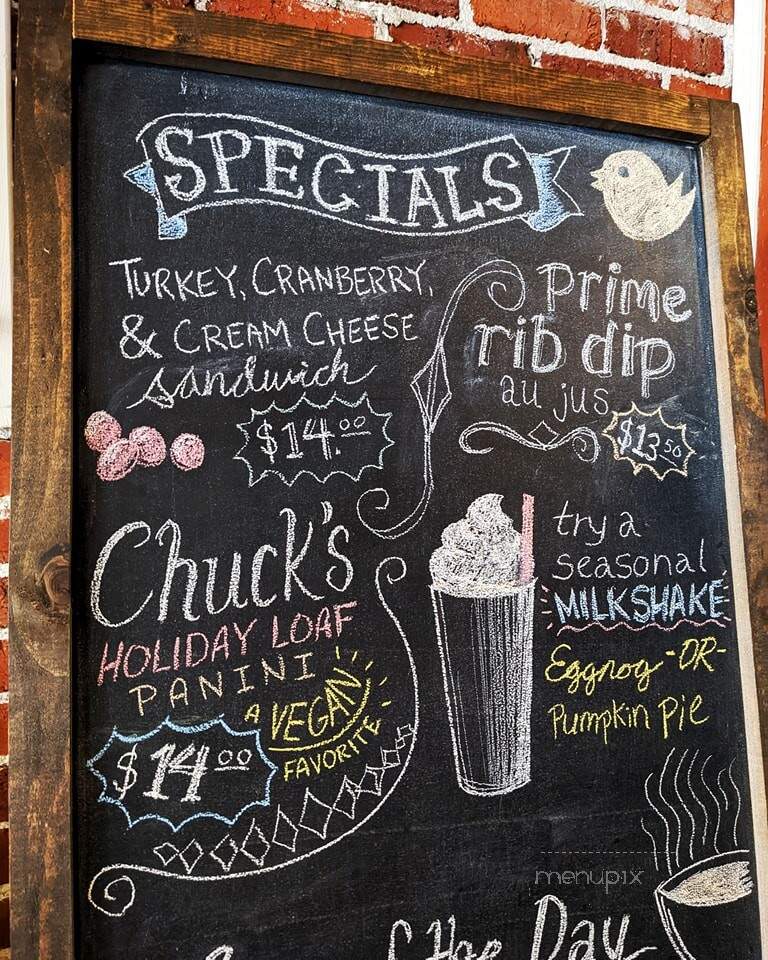 SPECIALS
TURKEY, CRANBERRY,
& CREAM CHEESE
sandwich
$14.00
prime
rib dip
au jus
$13.50
Chuck's
HOLIDAY LOAF
PANINI
A VEGAN
FAVORITE
$14.00
try a
seasonal
MILKSHAKE
Eggnog -OR-
Pumpkin Pie
menupix
of the Day